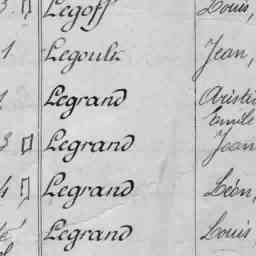 Legoff Louis,
1 Legoult Jean,
Legrand Aristi
Emile
3 Legrand Jean
4 Legrand Léon,
Legrand Louis